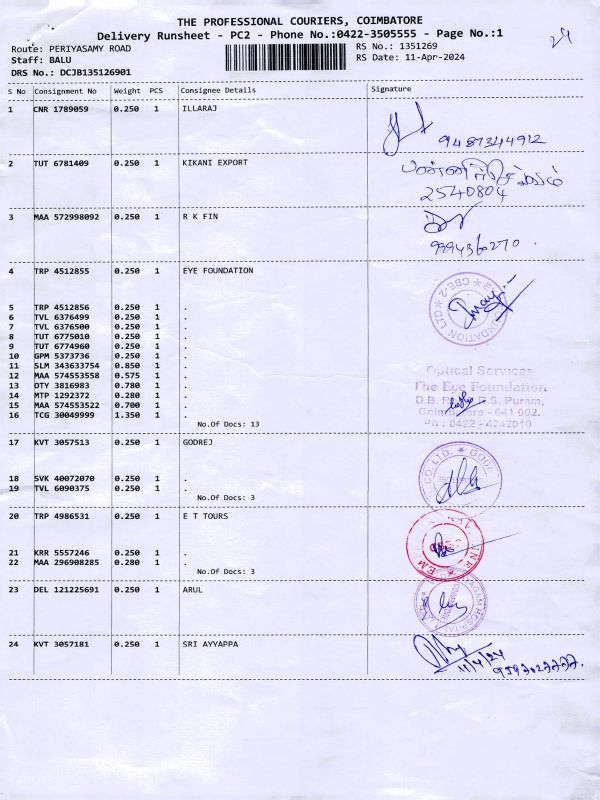 THE PROFESSIONAL COURIERS, COIMBATORE
Delivery Runsheet - PC2 - Phone No.:0422-3505555 - Page No.:1
Route: PERIYASAMY ROAD
Staff: BALU
DRS No.: DCJB135126901
RS No.: 1351269
RS Date: 11-Apr-2024
S No Consignment No Weight PCS Consignee Details Signature
1 CNR 1789059 0.250 1 ILLARAJ
9487344912
2 TUT 6781409 0.250 1 KIKANI EXPORT
2540804
3 MAA 572998092 0.250 1 R K FIN
9994360270
4 TRP 4512855 0.250 1 EYE FOUNDATION
5 TRP 4512856 0.250 1 .
6 TVL 6376499 0.250 1 .
7 TVL 6376500 0.250 1 .
8 TUT 6775010 0.250 1 .
9 TUT 6774960 0.250 1 .
10 GPM 5373736 0.250 1 .
11 SLM 343633754 0.850 1 .
12 MAA 574553558 0.575 1 .
13 OTY 3816983 0.780 1 .
14 MTP 1292372 0.280 1 .
15 MAA 574553522 0.700 1 .
16 TCG 30049999 1.350 1 .
No.Of Docs: 13
Optical Services
The Eye Foundation
D.B. R.S. Puram,
Coimbatore - 641 002.
Ph : 0422 - 4242010
17 KVT 3057513 0.250 1 GODREJ
18 SVK 40072070 0.250 1 .
19 TVL 6090375 0.250 1 .
No.Of Docs: 3
20 TRP 4986531 0.250 1 E T TOURS
21 KRR 5557246 0.250 1 .
22 MAA 296908285 0.280 1 .
No.Of Docs: 3
23 DEL 121225691 0.250 1 ARUL
24 KVT 3057181 0.250 1 SRI AYYAPPA
11/4/24